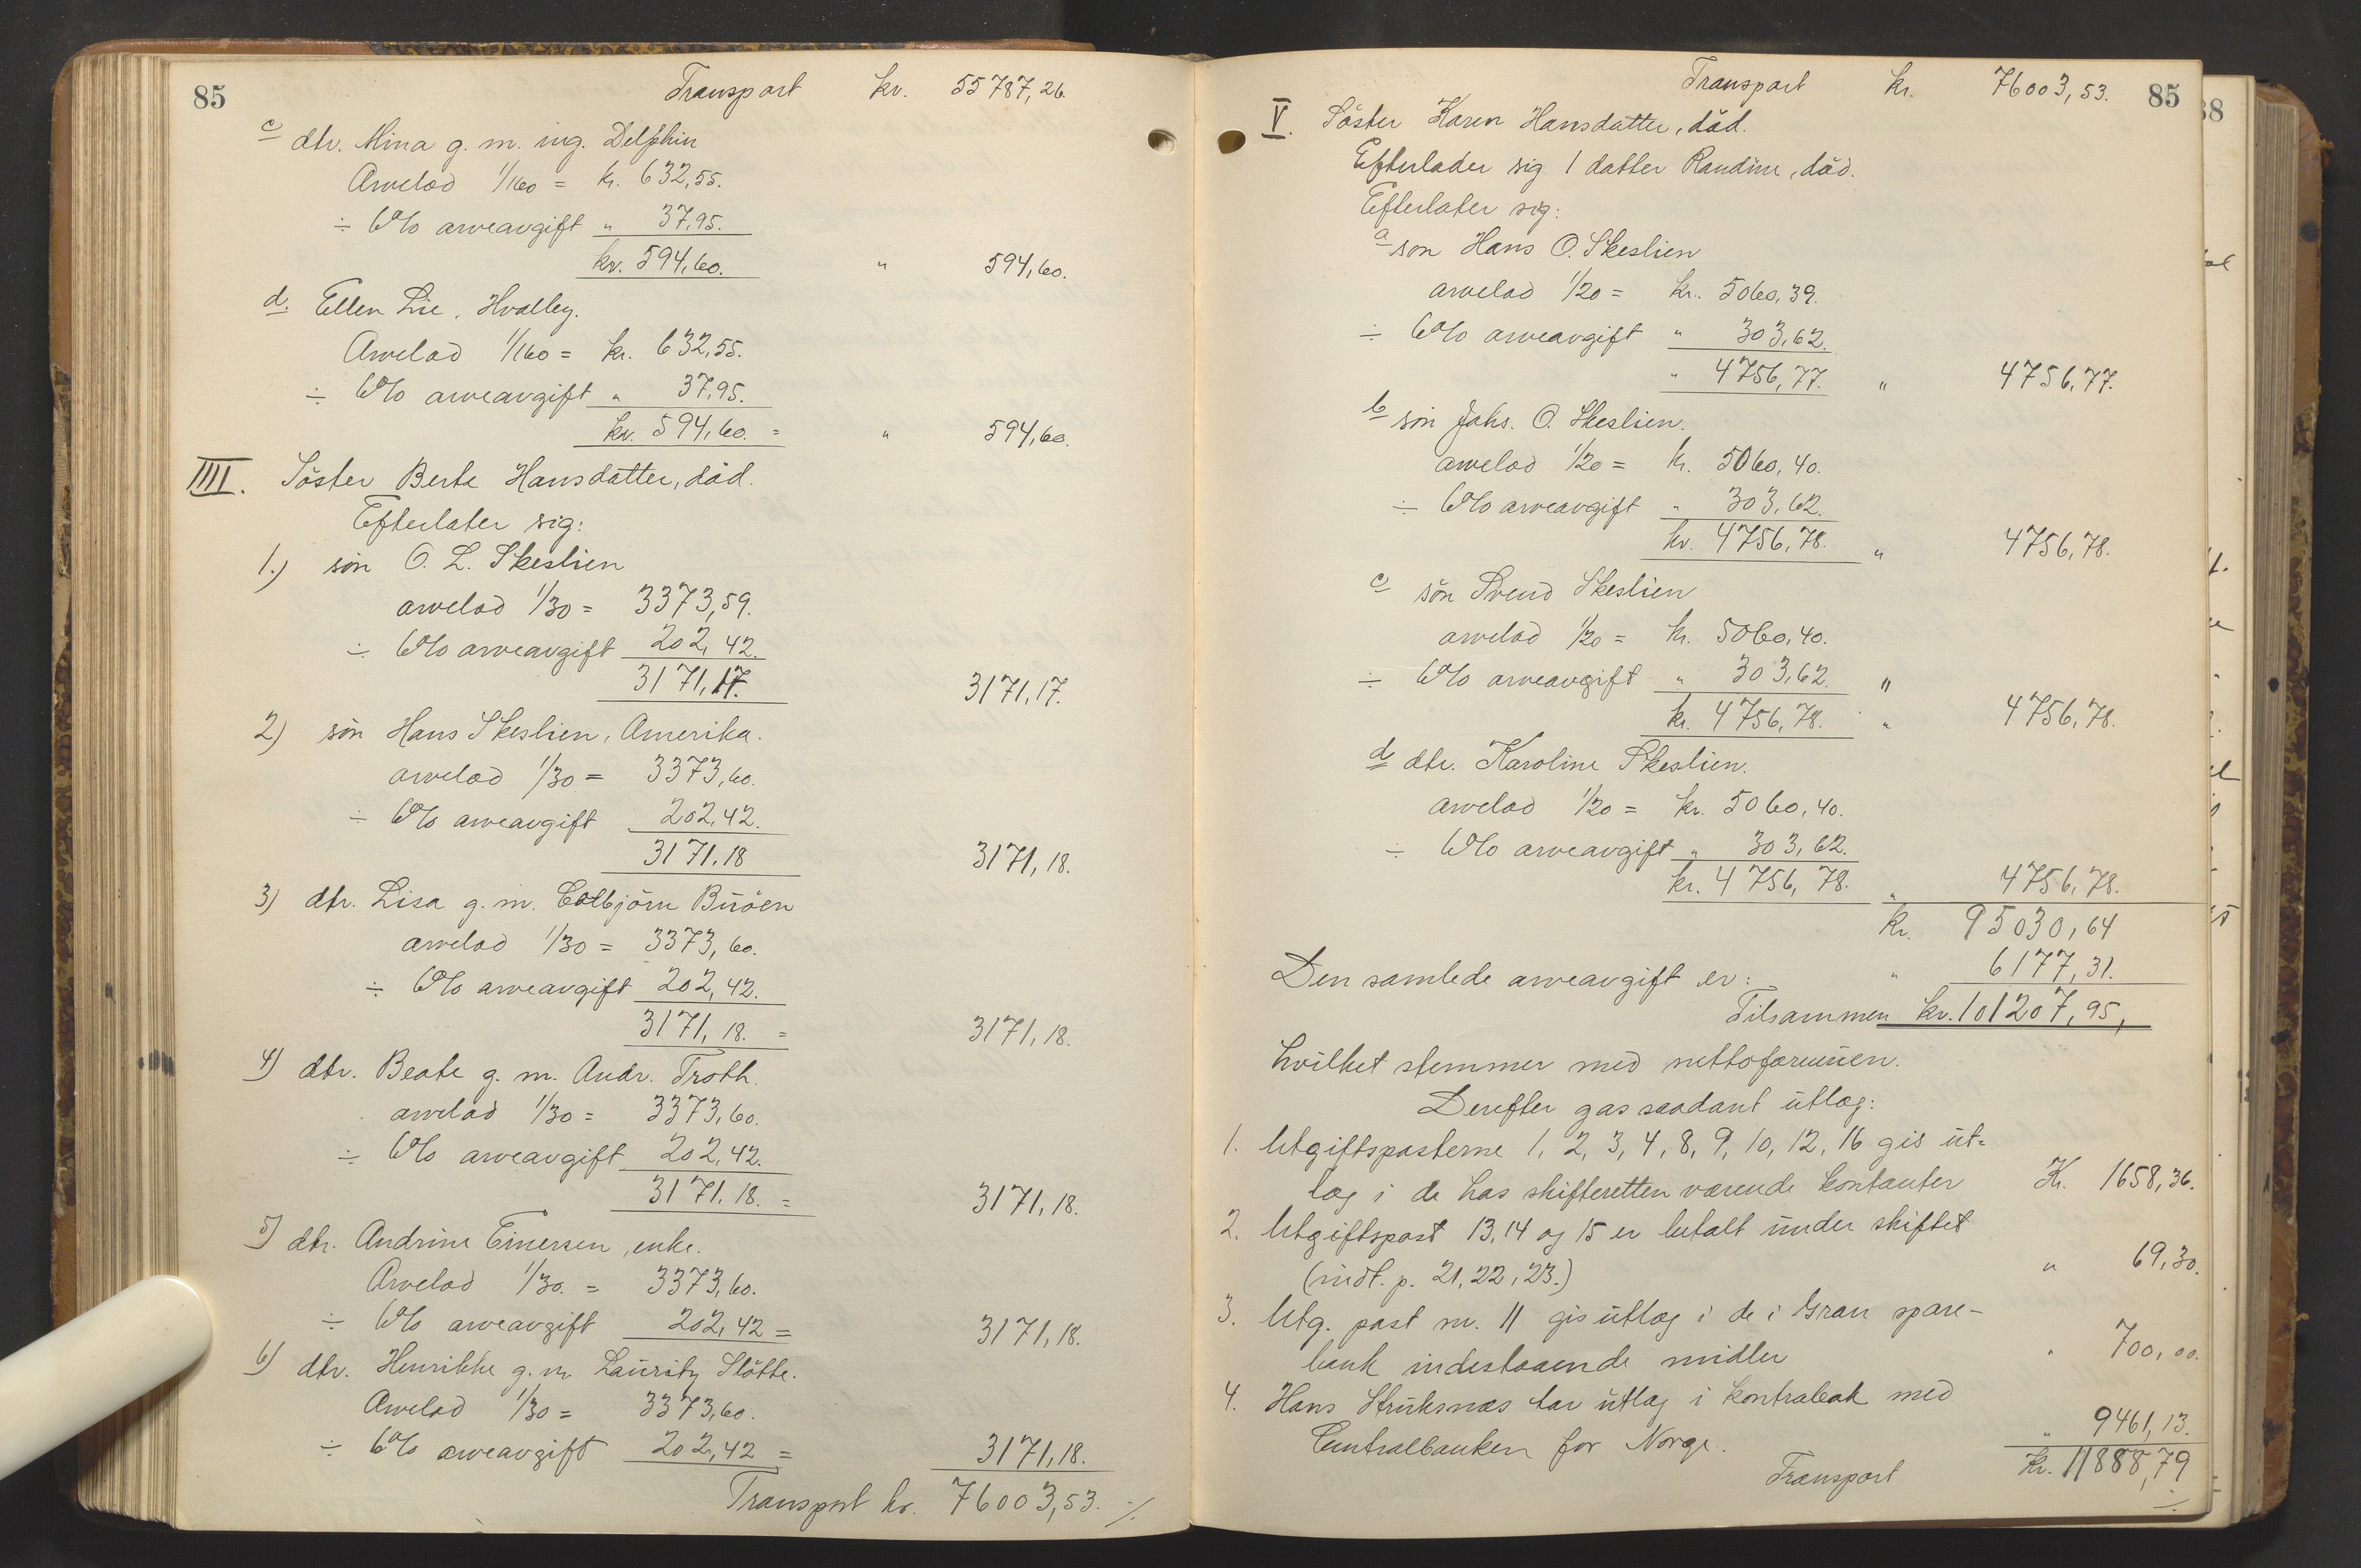 85
Transport kr. 55787,26.
c dtr. Mina g. m. ing. Delphin
Arvelod 1/160 = kr. 632,55.
÷ 6% arveavgift " 37,95.
kr. 594,60. " 594,60.
d. Ellen Lie, Hvalby.
Arvelod 1/160 = kr. 632,55.
÷ 6% arveavgift " 37,95.
kr. 594,60. = " 594,60.
IIII. Söster Berte Hansdatter, död.
Efterlater sig:
1.) sön O. L. Skeslien
arvelod 1/30 = 3373,59.
÷ 6% arveavgift 202,42.
3171,17. 3171,17.
2) sön Hans Skeslien, Amerika.
arvelod 1/30 = 3373,60.
÷ 6% arveavgift 202,42.
3171,18 3171,18.
3) dtr. Lisa g. m. Colbjörn Buöen
arvelod 1/30 = 3373,60.
÷ 6% arveavgift 202,42.
3171,18. = 3171,18.
4) dtr. Beate g. m. Andr. Troth.
arvelod 1/30 = 3373,60.
÷ 6% arveavgift 202,42.
3171,18. = 3171,18.
5) dtr. Andrine Einersen, enke.
Arvelod 1/30. = 3373,60.
÷ 6% arveavgift 202,42 = 3171,18.
6) dtr. Henrikke g. m. Lauritz Slötte.
Arvelod 1/30 = 3373,60.
÷ 6% arveavgift 202,42 = 3171,18.
Transport kr. 76003,53. ./.
Transport kr. 76003,53. 85
V. Söster Karen Hansdatter, död.
Efterlader sig 1 datter Randine, död.
Efterlater sig:
a sön Hans O. Skeslien
arvelod 1/20 = kr. 5060,39.
÷ 6% arveavgift " 303,62.
" 4756,77. " 4756,77.
b sön Johs. O. Skeslien.
arvelod 1/20 = kr. 5060,40.
÷ 6% arveavgift " 303,62.
kr. 4756,78. " 4756,78.
c sön Svend Skeslien
arvelod 1/20 = kr. 5060,40.
÷ 6% arveavgift " 303,62. "
kr. 4756,78. " 4756,78.
d dtr. Karoline Skeslien.
arvelod 1/20 = kr. 5060,40.
÷ 6% arveavgift " 303,62.
kr. 4756,78. " 4756,78.
kr. 95030,64
Den samlede arveavgift er: " 6177,31.
Tilsammen kr. 101207,95,
hvilket stemmer med nettoformuen.
Derefter gas saadant utlæg:
1. Utgiftsposterne 1, 2, 3, 4, 8, 9, 10, 12, 16 gis ut=
læg i de hos skifteretten værende kontanter Kr. 1658,36.
2. Utgiftspost 13, 14 og 15 er betalt under skiftet
(indt. p. 21, 22, 23.) " 69,30.
3. Utg. post nr. 11 gis utlæg i de i Gran spare-
bank indestaaende midler " 700,00.
4. Hans Struksnæs tar utlæg i kontrabok med
Centralbanken for Norge. " 9461,13.
Transport Kr. 11888,79
./.
38